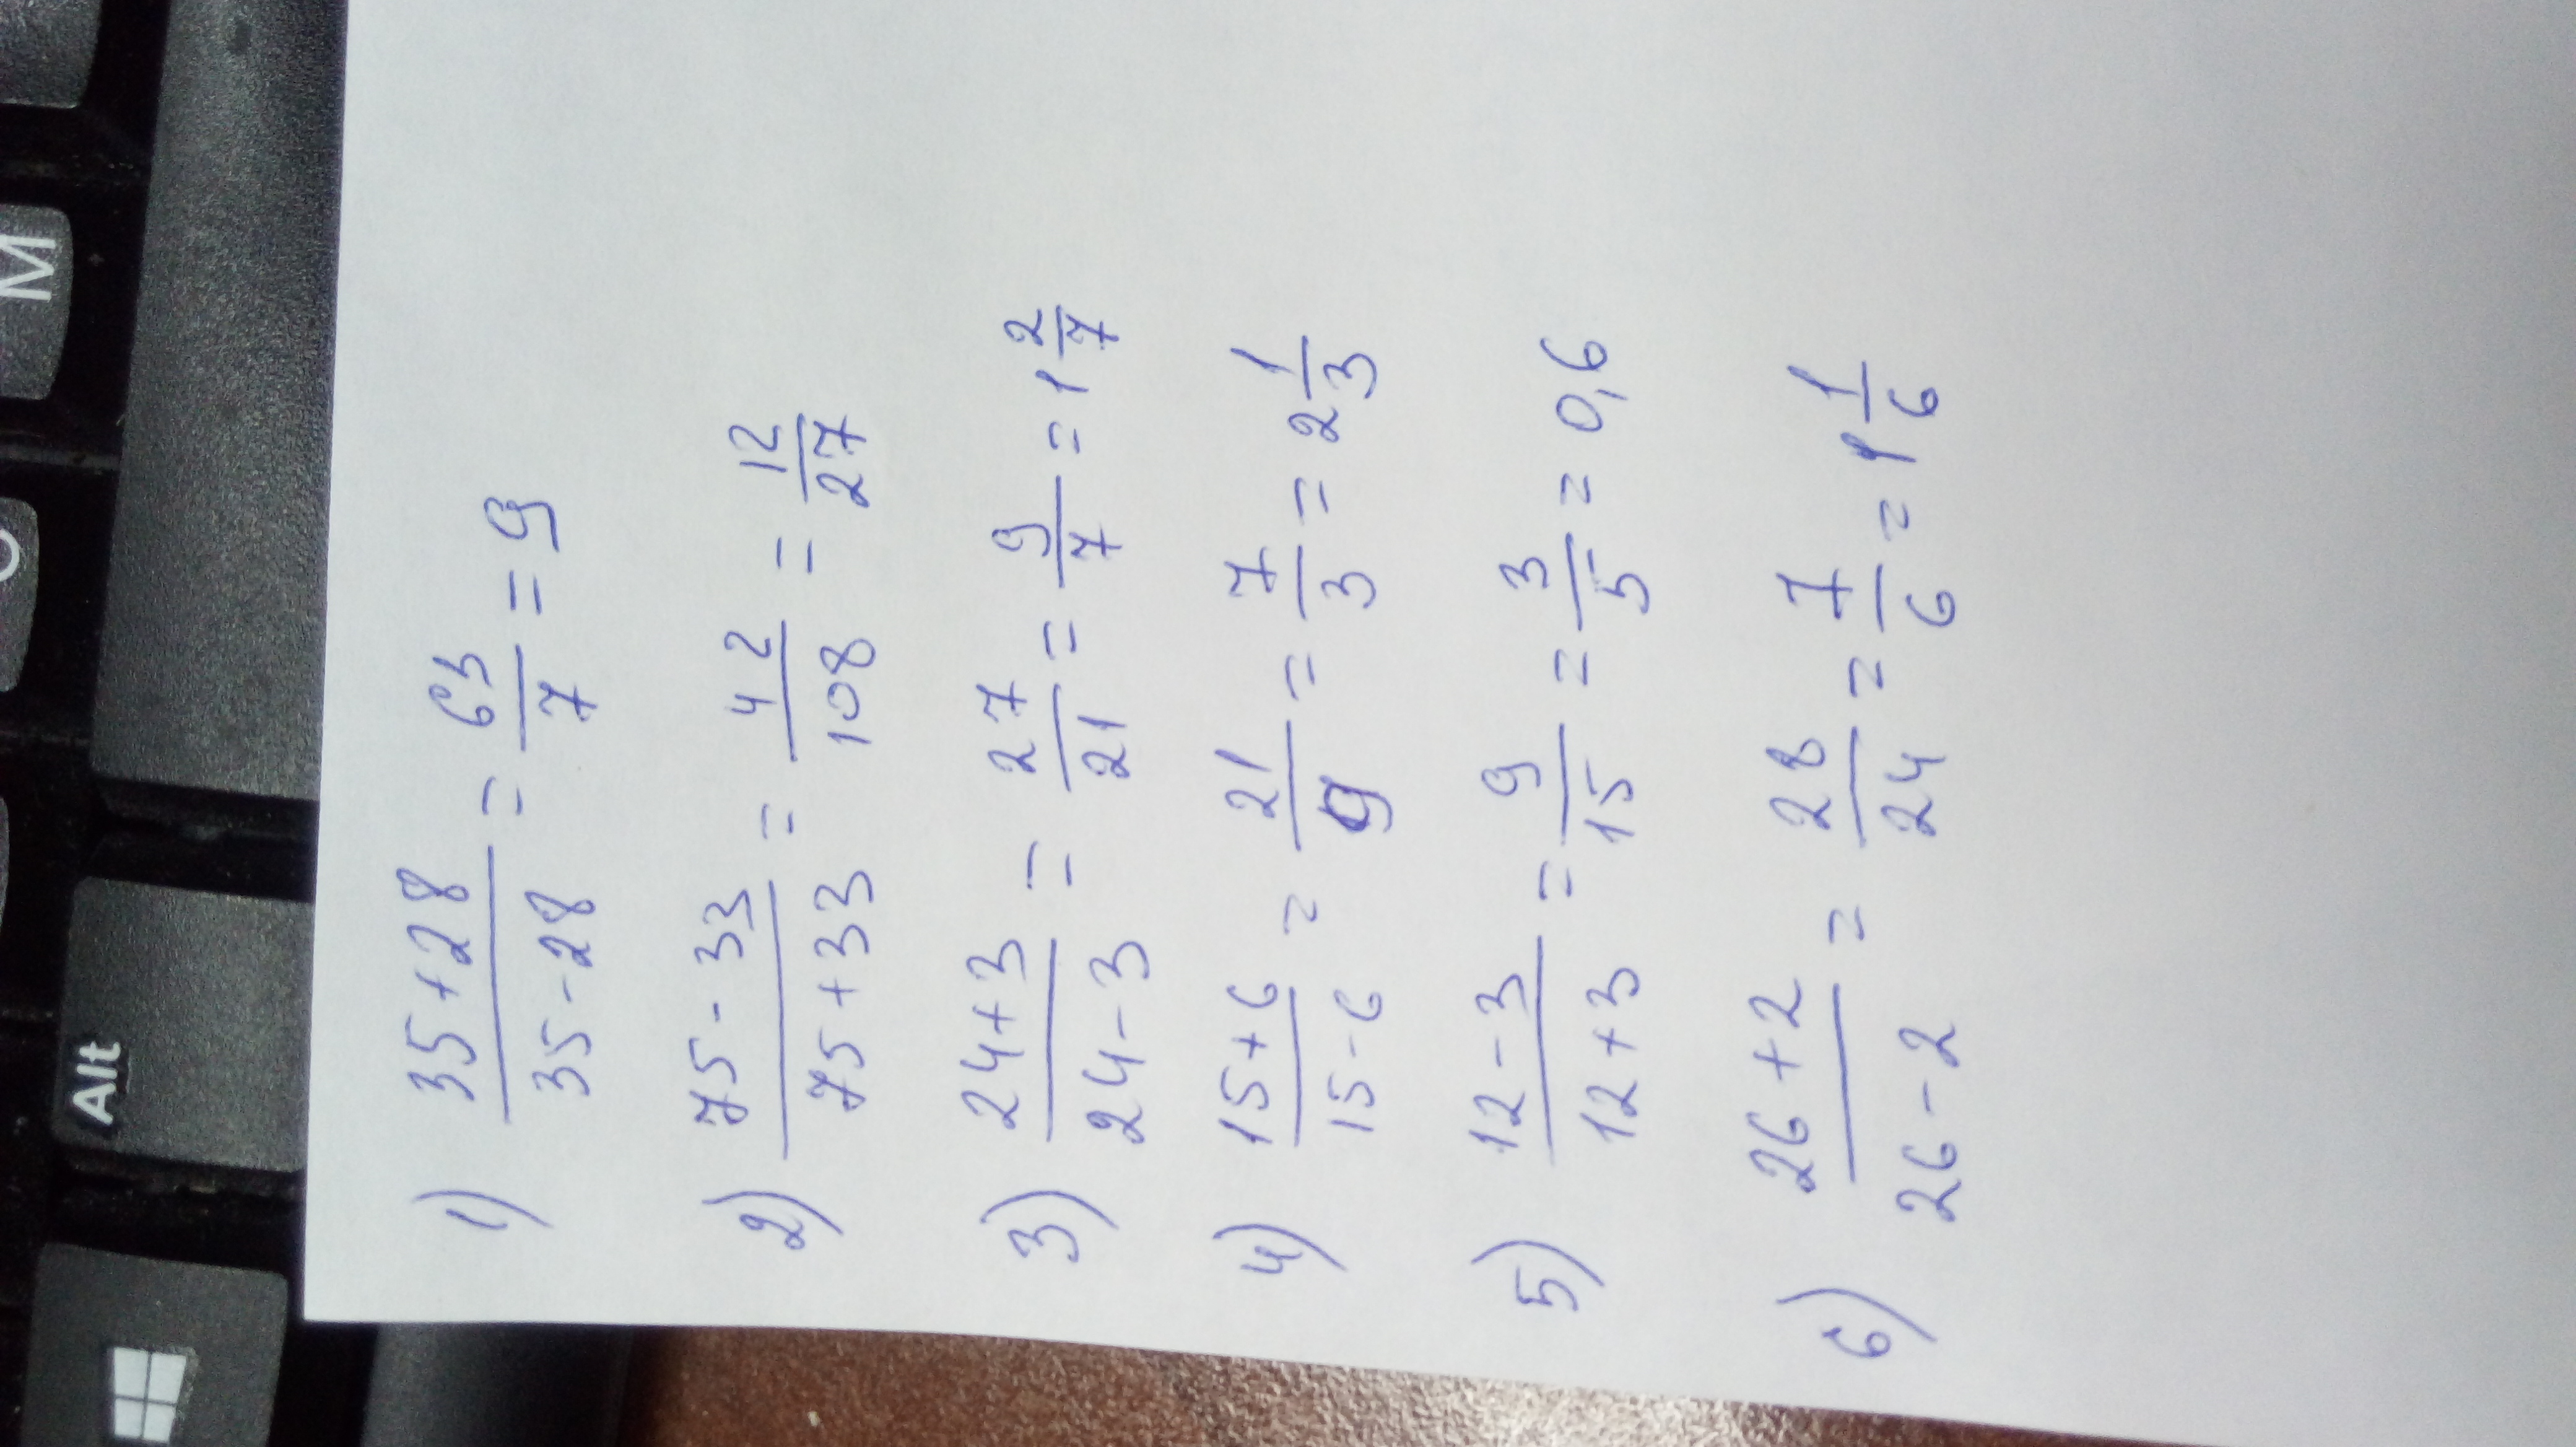 1) (35+28)/(35-28) = 63/7 = 9
2) (75-33)/(75+33) = 42/108 = 12/27
3) (24+3)/(24-3) = 27/21 = 9/7 = 1 2/7
4) (15+6)/(15-6) = 21/9 = 7/3 = 2 1/3
5) (12-3)/(12+3) = 9/15 = 3/5 = 0,6
6) (26+2)/(26-2) = 28/24 = 7/6 = 1 1/6
Alt
M